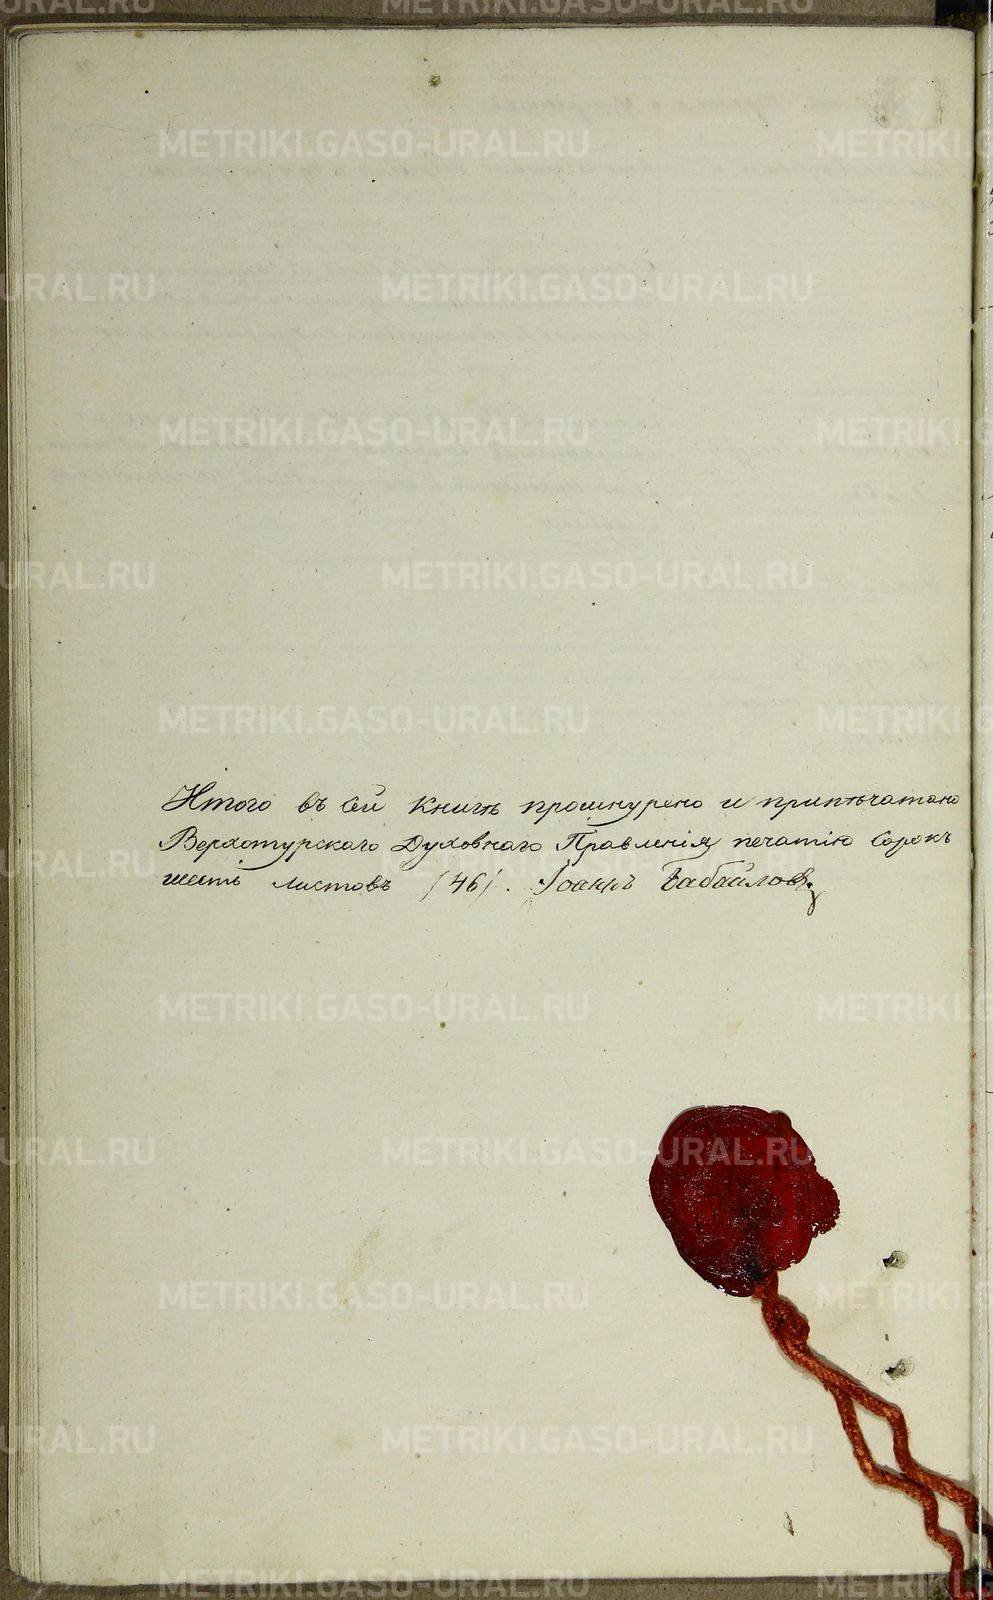 Итого въ сей книгѣ прошнурено и припѣчатано
Верхотурскаго Духовнаго Правленія печатію сорокъ
шесть листовъ /46/. Іоаннъ Бабайловъ
METRIKI.GASO-URAL.RU